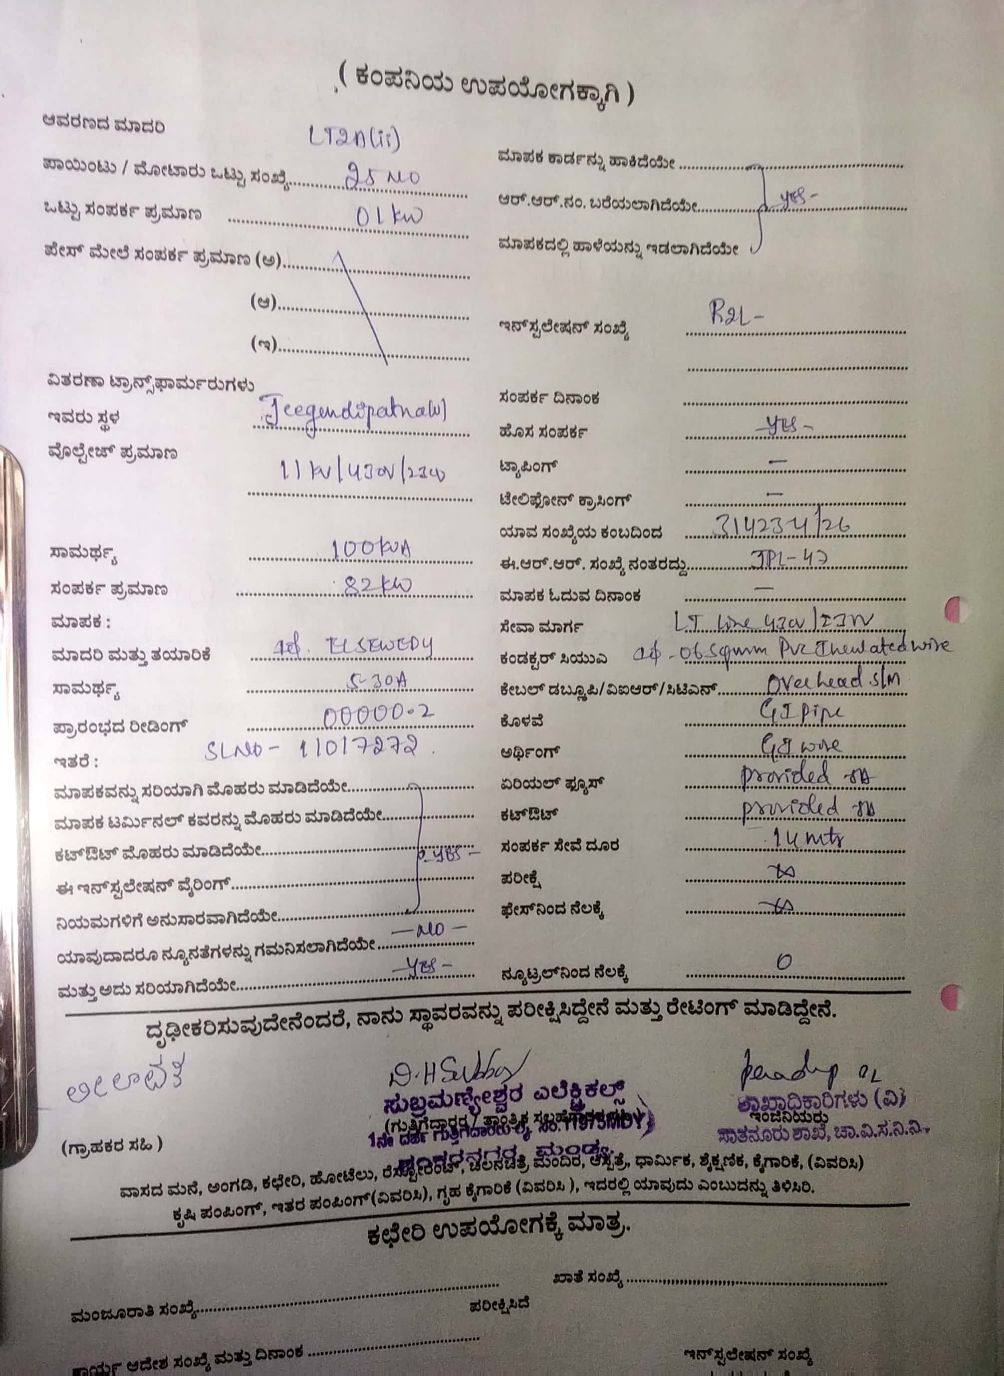 ( ಕಂಪನಿಯ ಉಪಯೋಗಕ್ಕಾಗಿ )
ಆವರಣದ ಮಾದರಿ LT2A(ii)
ಪಾಯಿಂಟು / ಮೋಟಾರು ಒಟ್ಟು ಸಂಖ್ಯೆ 25 NO
ಒಟ್ಟು ಸಂಪರ್ಕ ಪ್ರಮಾಣ 01 KW
ಪೇಸ್ ಮೇಲೆ ಸಂಪರ್ಕ ಪ್ರಮಾಣ (ಅ)
(ಆ)
(ಇ)
ವಿತರಣಾ ಟ್ರಾನ್ಸ್‌ಫಾರ್ಮರುಗಳು
ಇವರು ಸ್ಥಳ
ವೊಲ್ಟೇಜ್ ಪ್ರಮಾಣ 11KV/430V/230V
ಸಾಮರ್ಥ್ಯ 100KVA
ಸಂಪರ್ಕ ಪ್ರಮಾಣ 82KW
ಮಾಪಕ :
ಮಾದರಿ ಮತ್ತು ತಯಾರಿಕೆ 1ф. ELSEWEDY
ಸಾಮರ್ಥ್ಯ 5-30A
ಪ್ರಾರಂಭದ ರೀಡಿಂಗ್ 00000.2
ಇತರೆ : SLNO - 11017272.
ಮಾಪಕವನ್ನು ಸರಿಯಾಗಿ ಮೊಹರು ಮಾಡಿದೆಯೇ
ಮಾಪಕ ಟರ್ಮಿನಲ್ ಕವರನ್ನು ಮೊಹರು ಮಾಡಿದೆಯೇ
ಕಟ್‌ಔಟ್ ಮೊಹರು ಮಾಡಿದೆಯೇ YES -
ಈ ಇನ್‌ಸ್ಟಲೇಷನ್ ವೈರಿಂಗ್
ನಿಯಮಗಳಿಗೆ ಅನುಸಾರವಾಗಿದೆಯೇ
ಯಾವುದಾದರೂ ನ್ಯೂನತೆಗಳನ್ನು ಗಮನಿಸಲಾಗಿದೆಯೇ - NO -
ಮತ್ತು ಅದು ಸರಿಯಾಗಿದೆಯೇ - YES -
ಮಾಪಕ ಕಾರ್ಡನ್ನು ಹಾಕಿದೆಯೇ
ಆರ್.ಆರ್.ನಂ. ಬರೆಯಲಾಗಿದೆಯೇ YES -
ಮಾಪಕದಲ್ಲಿ ಹಾಳೆಯನ್ನು ಇಡಲಾಗಿದೆಯೇ
ಇನ್‌ಸ್ಟಲೇಷನ್ ಸಂಖ್ಯೆ
ಸಂಪರ್ಕ ದಿನಾಂಕ
ಹೊಸ ಸಂಪರ್ಕ - YES -
ಟ್ಯಾಪಿಂಗ್ -
ಟೇಲಿಫೋನ್ ಕ್ರಾಸಿಂಗ್ -
ಯಾವ ಸಂಖ್ಯೆಯ ಕಂಬದಿಂದ 314234/26
ಈ.ಆರ್.ಆರ್. ಸಂಖ್ಯೆ ನಂತರದ್ದು JPL-47
ಮಾಪಕ ಓದುವ ದಿನಾಂಕ -
ಸೇವಾ ಮಾರ್ಗ LT line 430V/230V
ಕಂಡಕ್ಟರ್ ಸಿಯುಎ 1ф - 06 Sqmm Pvc Insulated wire
ಕೇಬಲ್ ಡಬ್ಲೂಪಿ/ವಿಐಆರ್/ಸಿಟಿಎನ್ overhead S/M
ಕೊಳವೆ GI pipe
ಅರ್ಥಿಂಗ್ GI wire
ಏರಿಯಲ್ ಫ್ಯೂಸ್ provided
ಕಟ್‌ಔಟ್ provided
ಸಂಪರ್ಕ ಸೇವೆ ದೂರ 14 mtr
ಪರೀಕ್ಷೆ
ಫೇಸ್‌ನಿಂದ ನೆಲಕ್ಕೆ
ನ್ಯೂಟ್ರಲ್‌ನಿಂದ ನೆಲಕ್ಕೆ 0
ದೃಢೀಕರಿಸುವುದೇನೆಂದರೆ, ನಾನು ಸ್ಥಾವರವನ್ನು ಪರೀಕ್ಷಿಸಿದ್ದೇನೆ ಮತ್ತು ರೇಟಿಂಗ್ ಮಾಡಿದ್ದೇನೆ.
ಲೀಲಾವತಿ
ಸುಬ್ರಮಣ್ಯೇಶ್ವರ ಎಲೆಕ್ಟ್ರಿಕಲ್ಸ್
ಶಾಖಾಧಿಕಾರಿಗಳು (ವಿ)
ಇಂಜನಿಯರು
ಸಾತನೂರು ಶಾಖೆ, ಚಾ.ವಿ.ಸ.ನಿ.ನಿ.
(ಗ್ರಾಹಕರ ಸಹಿ )
ಶಂಕರನಗರ, ಮಂಡ್ಯ.
ವಾಸದ ಮನೆ, ಅಂಗಡಿ, ಕಛೇರಿ, ಹೋಟೆಲು, ರೆಸ್ಟೋರೆಂಟ್, ಚಲನಚಿತ್ರ ಮಂದಿರ, ಆಸ್ಪತ್ರೆ, ಧಾರ್ಮಿಕ, ಶೈಕ್ಷಣಿಕ, ಕೈಗಾರಿಕೆ, (ವಿವರಿಸಿ)
ಕೃಷಿ ಪಂಪಿಂಗ್, ಇತರ ಪಂಪಿಂಗ್(ವಿವರಿಸಿ), ಗೃಹ ಕೈಗಾರಿಕೆ (ವಿವರಿಸಿ ), ಇದರಲ್ಲಿ ಯಾವುದು ಎಂಬುದನ್ನು ತಿಳಿಸಿರಿ.
ಕಛೇರಿ ಉಪಯೋಗಕ್ಕೆ ಮಾತ್ರ.
ಖಾತೆ ಸಂಖ್ಯೆ
ಮಂಜೂರಾತಿ ಸಂಖ್ಯೆ
ಪರೀಕ್ಷಿಸಿದೆ
ಕಾರ್ಯ ಆದೇಶ ಸಂಖ್ಯೆ ಮತ್ತು ದಿನಾಂಕ
ಇನ್‌ಸ್ಟಲೇಷನ್ ಸಂಖ್ಯೆ